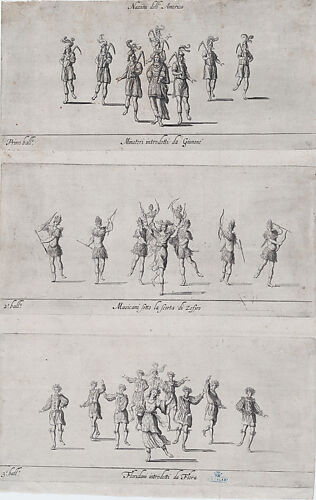 Nazioni dell'America
Primo ball.º
Minatori introdotti da Giunone
2.º ball.º
Musicani sotto la scorta di Zefiro
3.º ball.º
Floridani introdotti da Flora